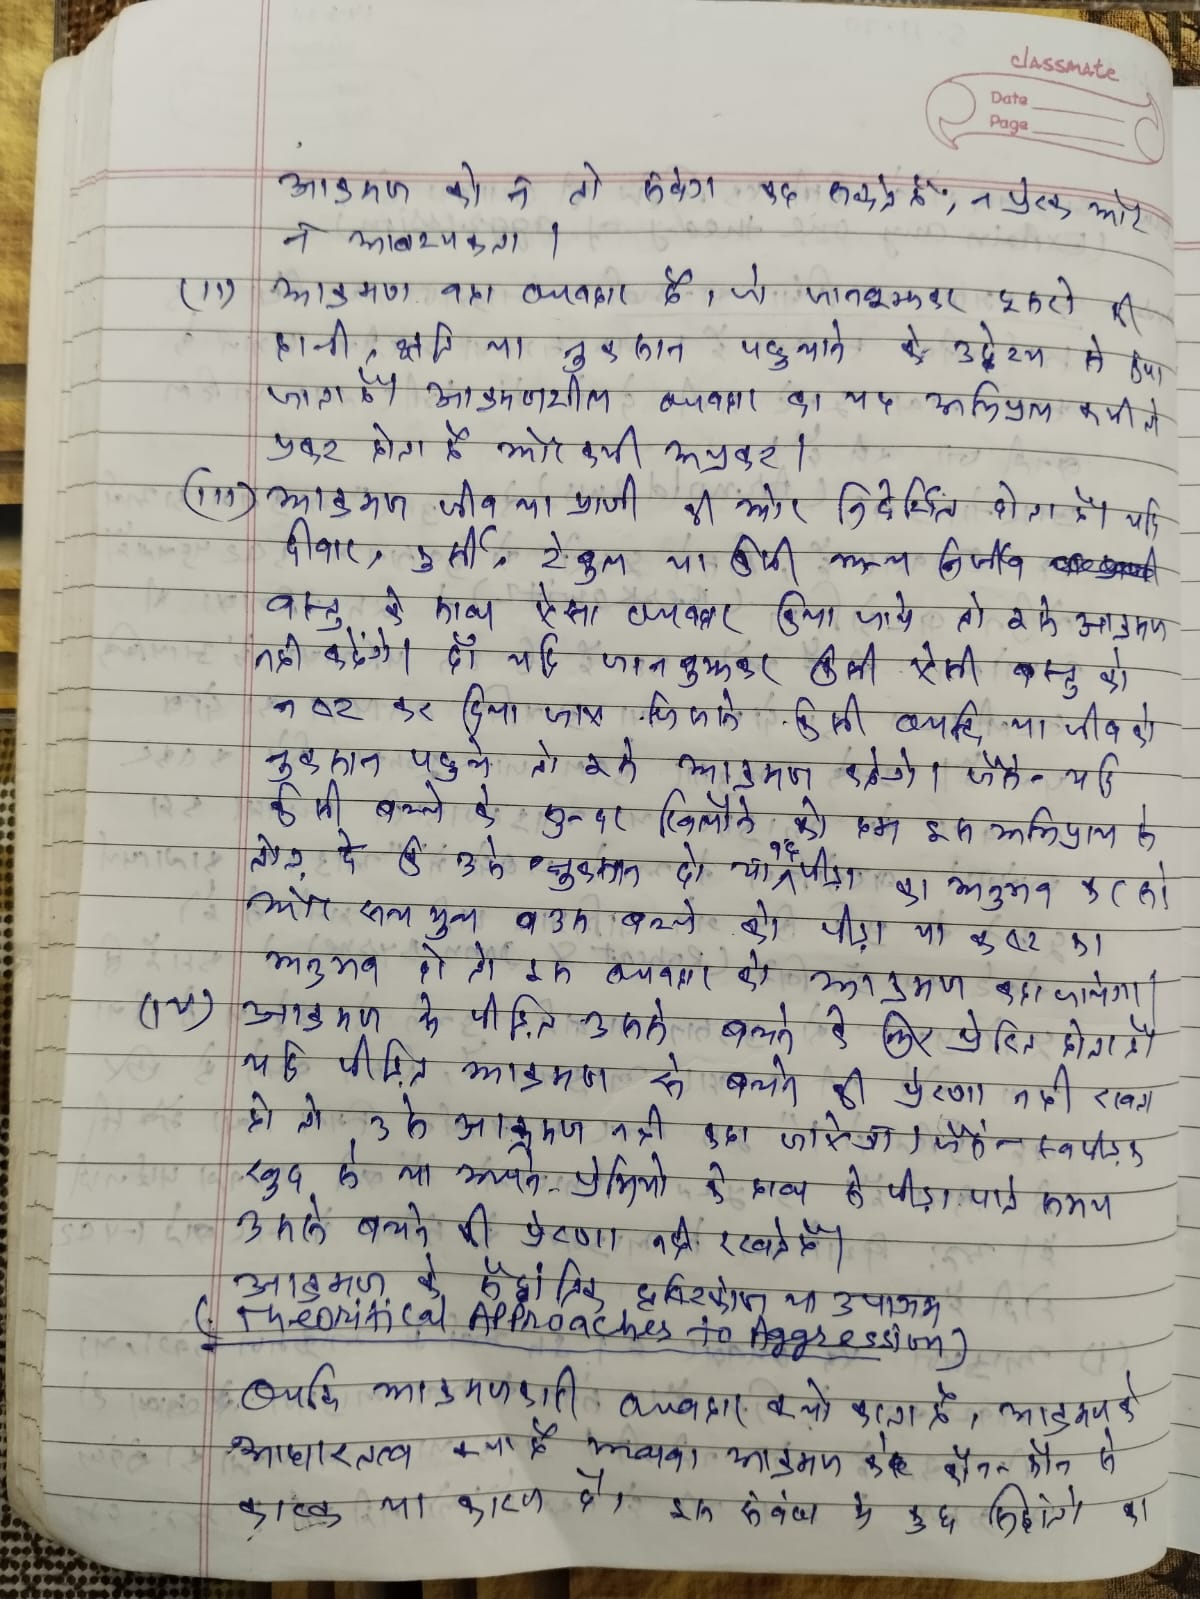 classmate
Date
Page
आक्रमण को न तो संवेग कह सकते हैं, न प्रेरक और
न आवश्यकता।
(ii) आक्रमण वह व्यवहार है, जो जानबूझकर दूसरो की
हानी, क्षति या नुकसान पहुचाने के उद्देश्य से किया
जाता है। आक्रमणशील व्यवहार का यह अभिप्राय कभी तो
प्रकट होता है और कभी अप्रकट।
(iii) आक्रमण जीव या प्राणी की ओर निर्देशित होता है। यदि
दीवार, कुर्सी, टेबुल या किसी अन्य निर्जीव
वस्तु के साथ ऐसा व्यवहार किया जाये तो इसे आक्रमण
नही कहेंगे। हाँ यदि जानबुझकर किसी ऐसी वस्तु को
नष्ट कर दिया जाए जिससे किसी व्यक्ति या जीव को
नुकसान पहुचे तो इसे आक्रमण कहेगे। जैसे- यदि
किसी बच्चे के सुन्दर खिलौने को हम इस अभिप्राय से
तोड़ दे कि उसे नुकसान हो या वह पीड़ा का अनुभव करे तो
और सचमुच उस बच्चे को पीड़ा या कष्ट का
अनुभव हो तो इस व्यवहार को आक्रमण कहा जायेगा।
(iv) आक्रमण के पीड़ित उससे बचने के लिए प्रेरित होता है।
यदि पीड़ित आक्रमण से बचने की प्रेरणा नही रखता
हो तो उसे आक्रमण नही कहा जाऐगा। जैसे- स्वपीड़क
खुद से या अपने प्रेमियो के हाथ से पीड़ा पाते समय
उससे बचने की प्रेरणा नही रखते हैं।
आक्रमण के सैद्धांतिक दृष्टिकोण या उपागम
(Theoritical Approaches to Aggression)
व्यक्ति आक्रमणकारी व्यवहार क्यो करता है, आक्रमण के
आधारतत्व क्या है अथवा आक्रमण के कौन-कौन से
कारक या कारण है, इस संबंध मे कुछ सिद्धांतो का